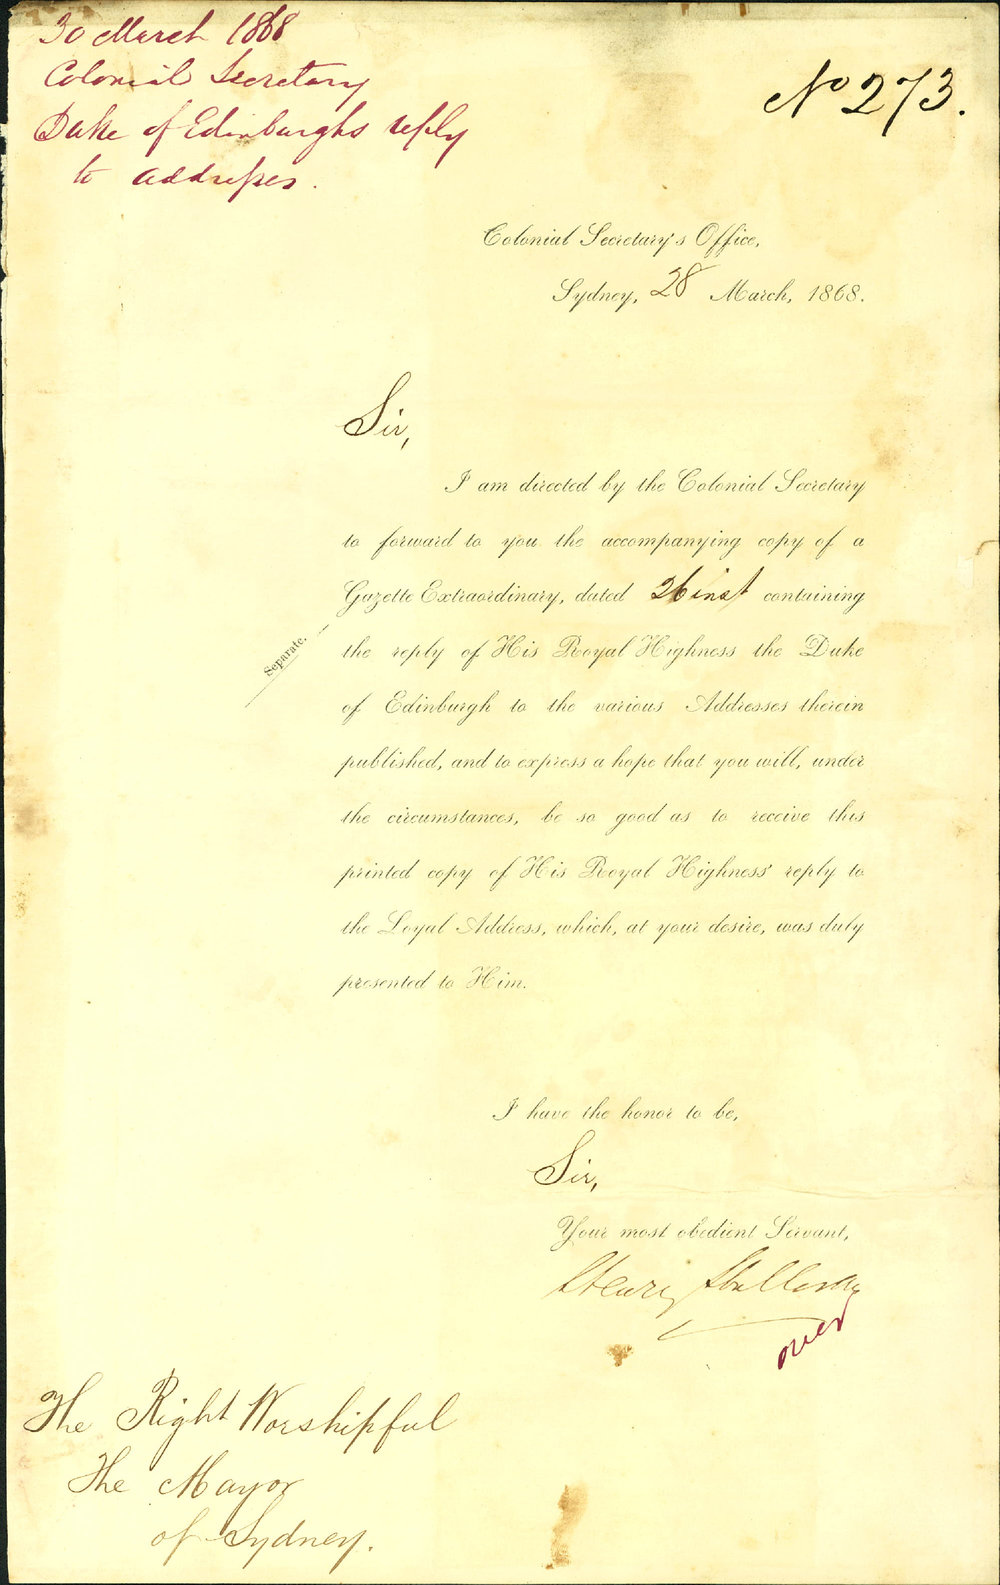 30 March 1868
Colonial Secretary
Duke of Edinburghs reply
to addresses.
No 273.
Colonial Secretary's Office,
Sydney, 28 March, 1868.
Sir,
I am directed by the Colonial Secretary
to forward to you the accompanying copy of a
Gazette Extraordinary, dated 26 inst containing
Separate.
the reply of His Royal Highness the Duke
of Edinburgh to the various Addresses therein
published, and to express a hope that you will, under
the circumstances, be so good as to receive this
printed copy of His Royal Highness' reply to
the Loyal Address, which, at your desire, was duly
presented to Him.
I have the honor to be,
Sir,
Your most obedient Servant,
Henry Halloran
over
The Right Worshipful
The Mayor
of Sydney.